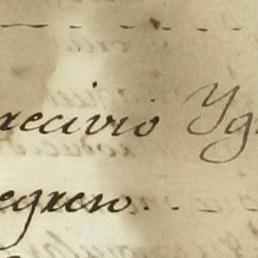 recivio Yg
egreso. . - -